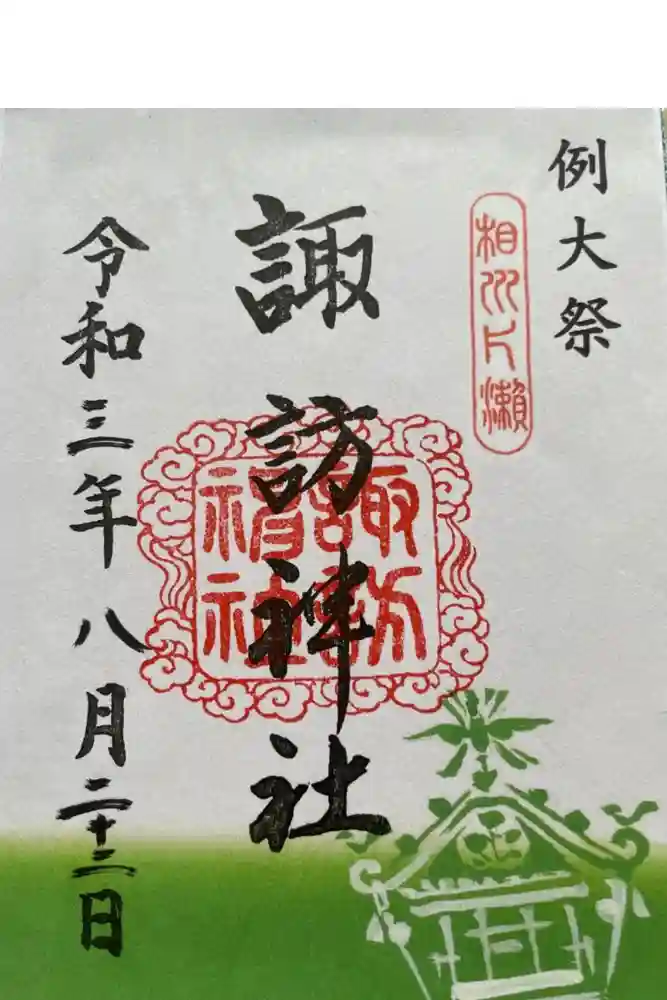 例大祭
相州片瀬
諏訪神社
諏訪
神社
令和三年八月二十二日